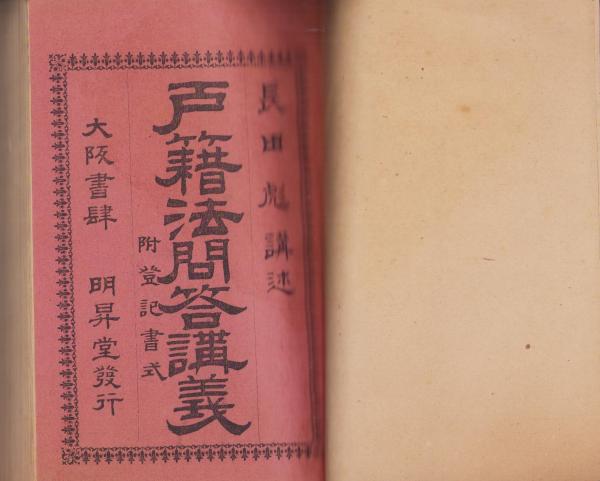 長田彪講述
戸籍法問答講義
附登記書式
大阪書肆 明昇堂發行